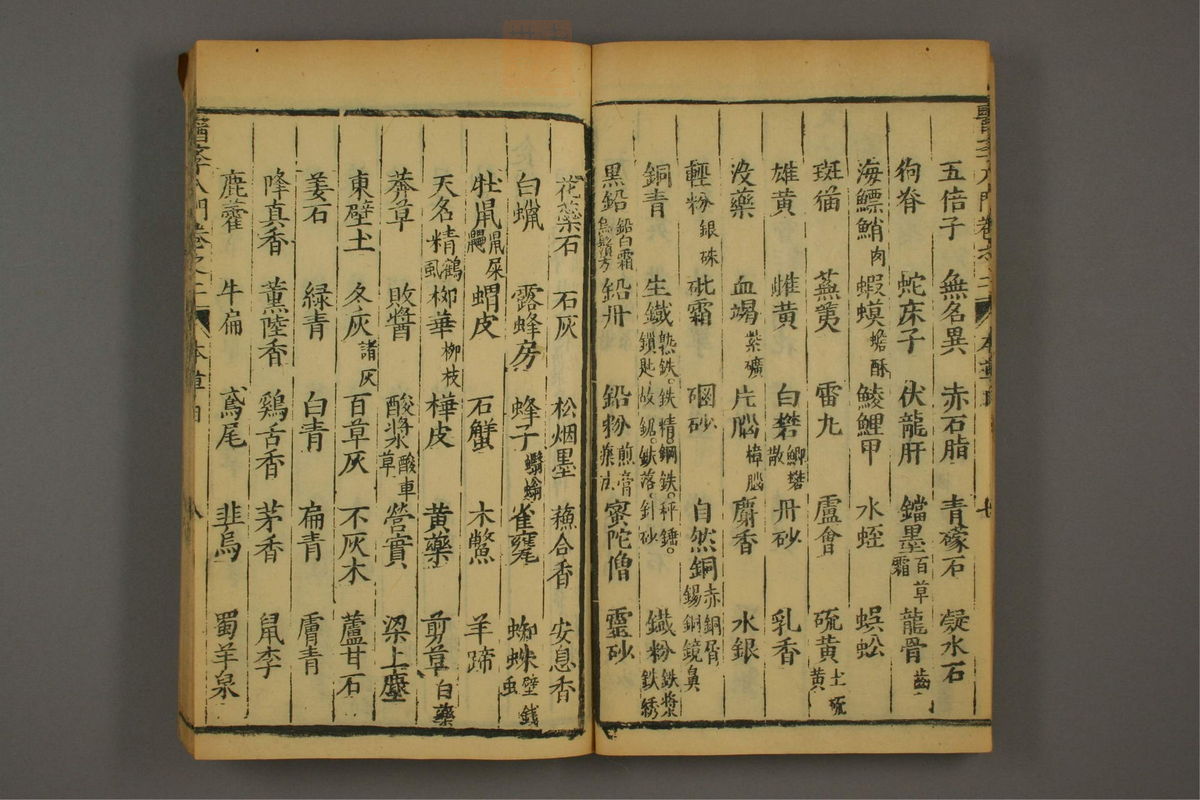 五倍子 無名異 赤石脂 青礞石 凝水石
狗脊 蛇床子 伏龍肝 鐺墨百草霜 龍骨齒
海鰾鮹肉 蝦蟆蟾酥 鯪鯉甲 水蛭 蜈蚣
斑猫 蕪荑 雷丸 盧會 硫黄土硫黄
雄黄 雌黄 白礬鯽礬散 丹砂 乳香
没藥 血竭紫礦 片腦樟腦 麝香 水銀
輕粉銀硃 砒霜 硇砂 自然銅赤銅屑錫銅鏡鼻
銅青 生鐵熟鉄。鉄精。鋼鉄。秤錘。鎖匙。故鋸。鉄落。針砂 鐵粉鉄漿鉄綉
黑鉛鉛白霜烏鬚方 鉛丹 鉛粉煎膏藥方 蜜陀僧 靈砂
花蘂石 石灰 松烟墨 蘓合香 安息香
白蝋 露蜂房 蜂子 雀甕 蜘蛛壁錢虫
牡鼠鼠屎 蝟皮 石蟹 木鱉 羊蹄
天名精鶴虱 柳華柳枝 樺皮 黄藥 剪草白藥
莽草 敗醬 酸漿草酸車 營實 梁上塵
東壁土 冬灰諸灰 百草灰 不灰木 蘆甘石
姜石 緑青 白青 扁青 膚青
降真香 薰陸香 鷄舌香 茅香 鼠李
鹿藿 牛扁 鳶尾 韭烏 蜀羊泉
醫學入門卷之二 本草目 八